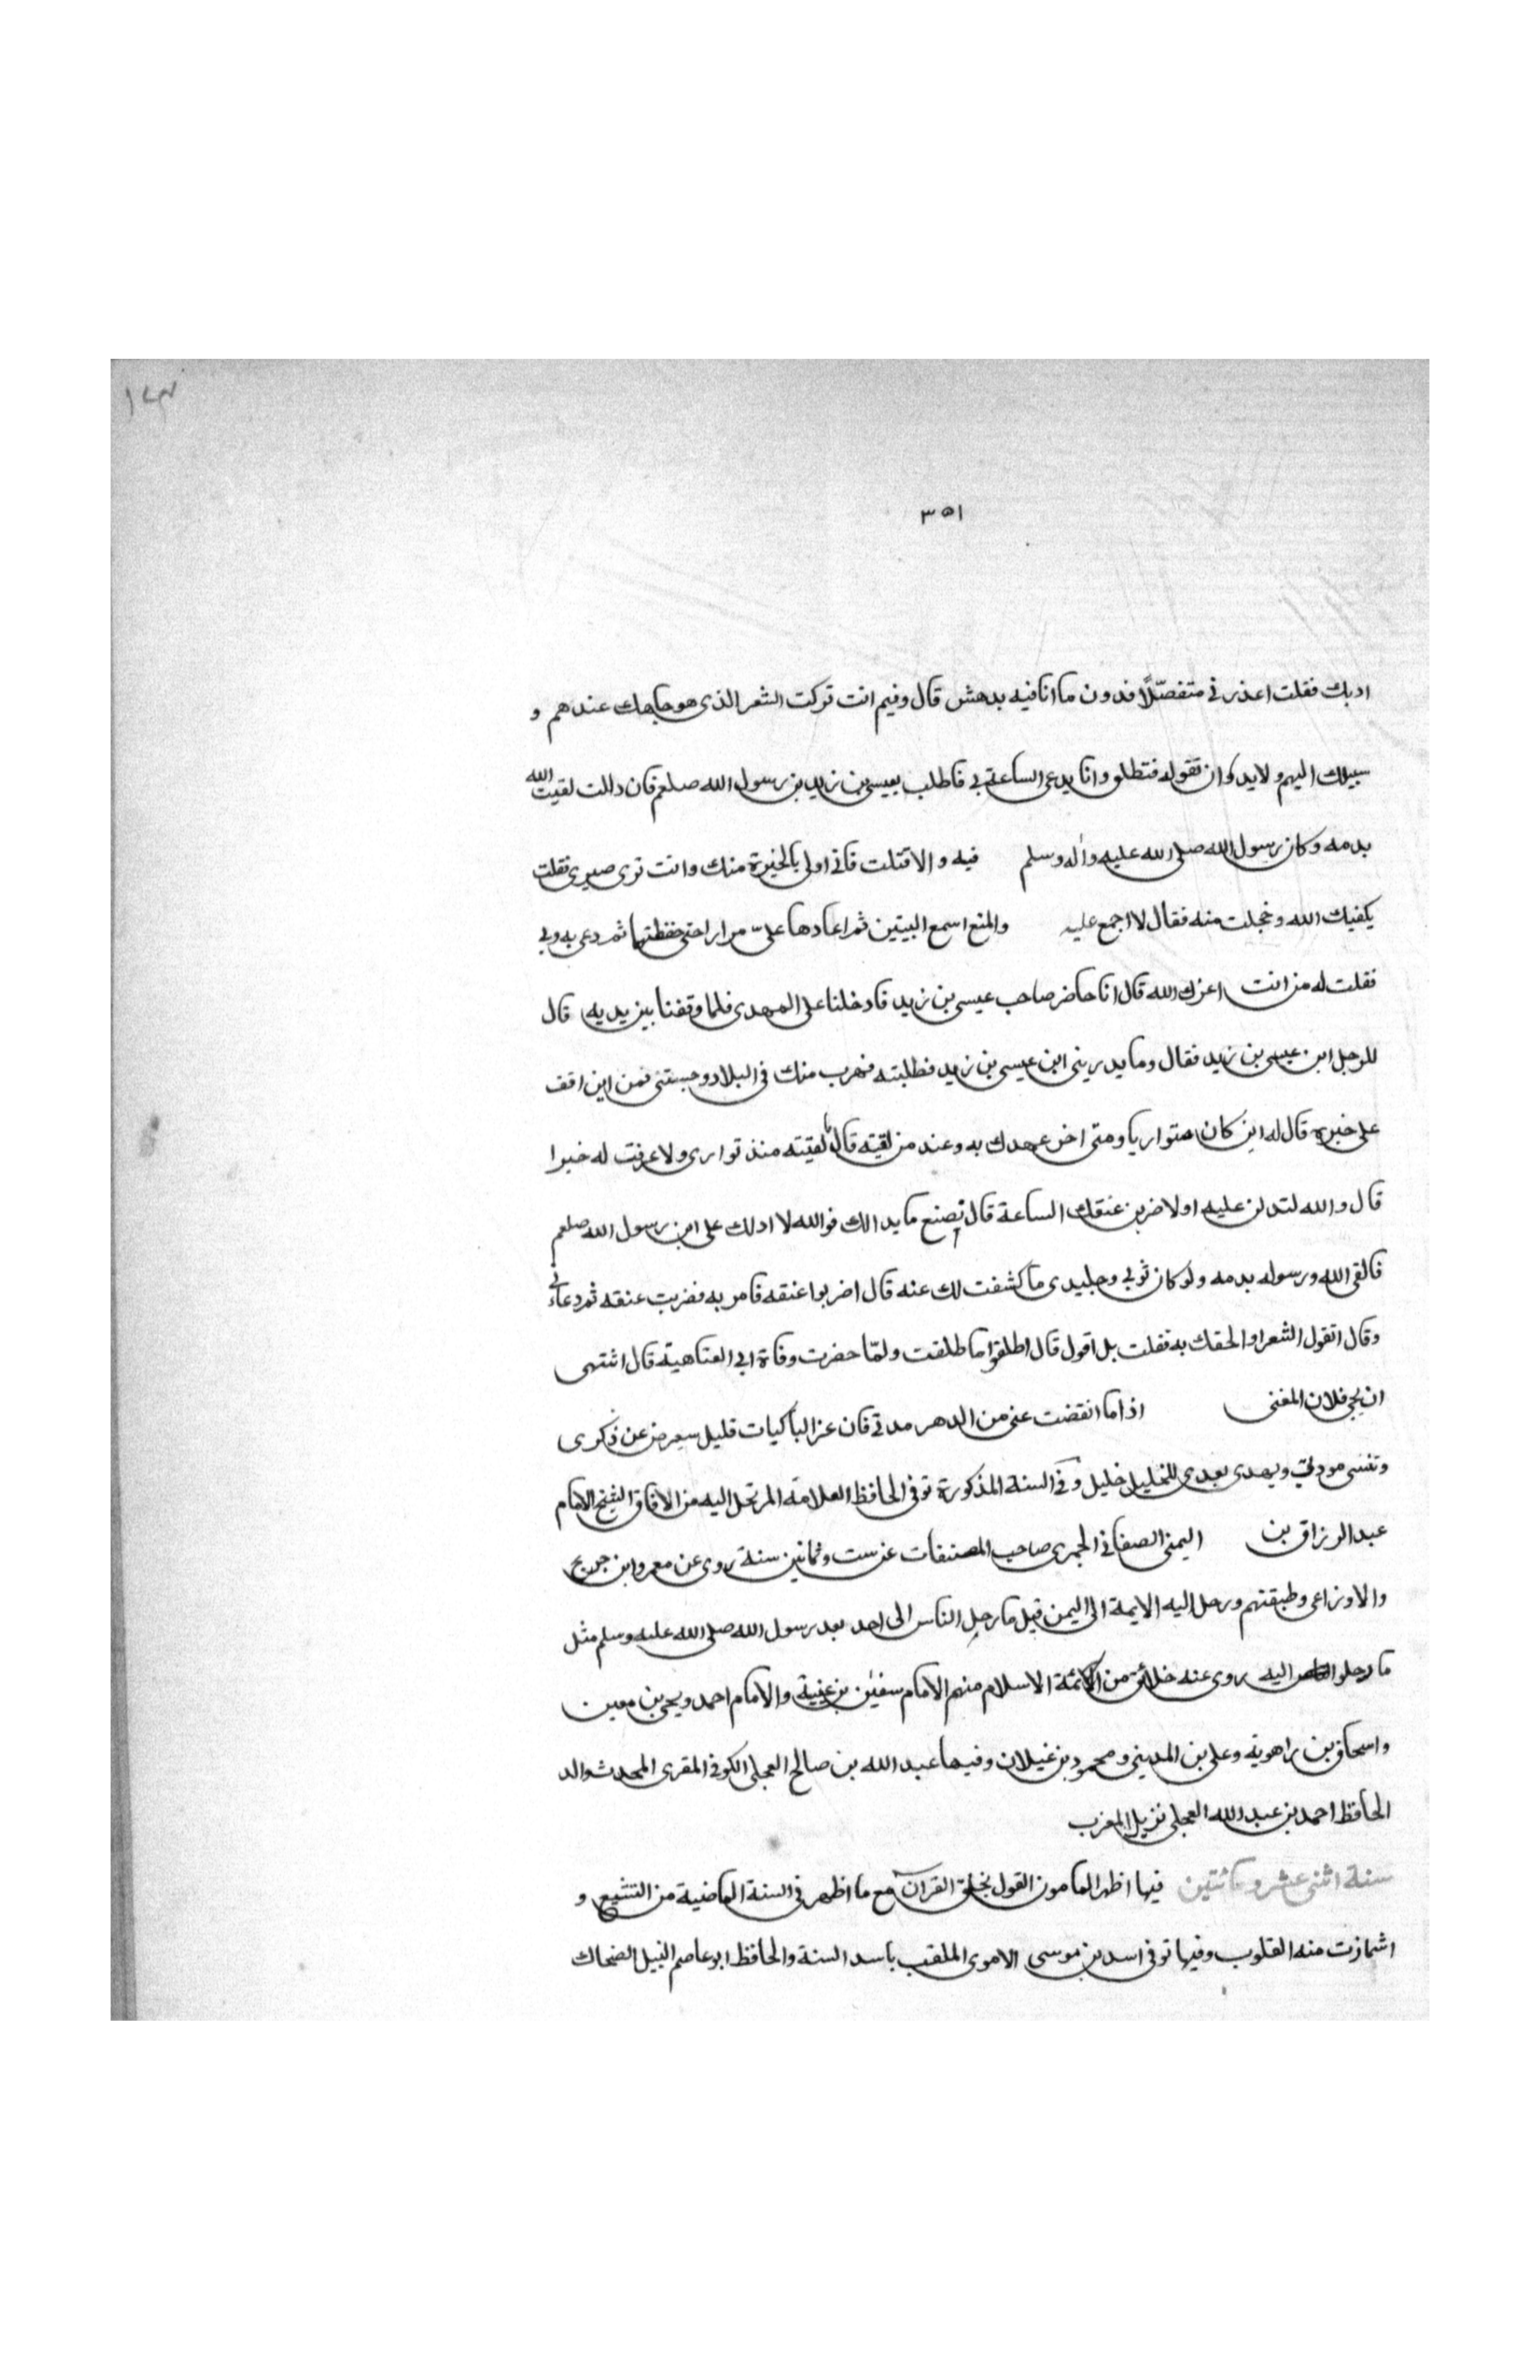 ١٤٣
٣٥١
ادبك فقلت اعذرنى متفضّلاً فدون ما انا فيه يدهش قال وفيم انت تركت الشعر الذى هو جاهك عندهم و
سبيلك اليهم ولا بد ان تقوله فتطلق وانا يدعى الساعة بى فاطلب بعيسى بن زيد بن رسول الله صلعم فان دللت لقيت الله
بدمه وكان رسول الله صلى الله عليه واله وسلم فيه والا قتلت فانى اولى بالحيرة منك وانت ترى صبرى فقلت
يكفيك الله وخجلت منه فقال لا اجمع عليه والمنع اسمع البيتين ثم اعادها علىّ مرارا حتى حفظتها ثم دعى به وبى
فقلت له من انت اعزك الله قال انا حاضر صاحب عيسى بن زيد فادخلنا على المهدى فلما وقفنا بين يديه قال
للرجل اين عيسى بن زيد فقال وما يدرينى اين عيسى بن زيد فطلبته فهرب منك فى البلاد وحبستنى فمن اين اقف
على خبره قال له اين كان متواريا ومتى اخر عهدك به وعند من لقيته قال ما لقيته منذ توارى ولا عرفت له خبرا
قال والله لتدلن عليه او لاضربن عنقك الساعة قال اصنع ما بدا لك فوالله لا ادلك على ابن رسول الله صلعم
فالقى الله ورسوله بدمه ولو كان ثوبى وجليدى ما كشفت لك عنه قال اضربوا عنقه فامر به فضربت عنقه ثم دعانى
وقال اتقول الشعر او الحقك به فقلت بل اقول قال اطلقوا فاطلقت ولمّا حضرت وفاة ابى العتاهية قال اشتهى
ان يجى فلان المغنى اذا ما انقضت عنى من الدهر مدتى فان عزا الباكيات قليل سيعرض عن ذكرى
وتنسى مودتى ويهدى بعدى للخليل خليل وفى السنة المذكورة توفى الحافظ العلامة المرتحل اليه من الافاق الشيخ الامام
عبد الرزاق بن اليمنى الصنعانى الحميرى صاحب المصنفات عن ست وثمانين سنة روى عن معمر وابن جريج
والاوزاعى وطبقتهم ورحل اليه الايمة الى اليمن قيل ما رحل الناس الى احد بعد رسول الله صلى الله عليه وسلم مثل
ما رحلوا اليه روى عنه خلائق من ائمة الاسلام منهم الامام سفين بن عيينة والامام احمد ويحيى بن معين
واسحاق بن راهوية وعلى بن المدينى ومحمود بن غيلان وفيها عبد الله بن صالح العجلى الكوفى المقرى المحدث والد
الحافظ احمد بن عبد الله العجلى نزيل المغرب
سنة اثنى عشر ومائتين فيها اظهر المامون القول بخلق القرآن مع ما اظهر فى السنة الماضية من التشيع و
اشمازت منه القلوب وفيها توفى اسد بن موسى الاموى الملقب باسد السنة والحافظ ابو عاصم النبيل الضحاك